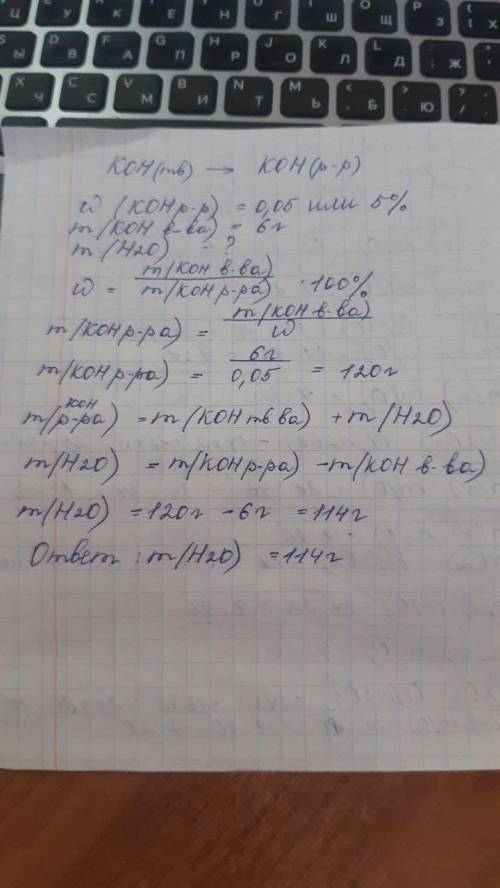 Ц У К Е Н Г Ш Щ З Х
S D F G H J K L
Ы В А П Р О Л Д Ж
X C V B N M
Ч С М И Т Ь Б Ю
KOH(тв) → KOH(р-р)
ω (KOH р-р) = 0,05 или 5%
m(KOH в-ва) = 6г
m(H2O) - ?
ω = m(KOH в-ва) / m(KOH р-ра) · 100%
m(KOH р-ра) = m(KOH в-ва) / ω
m(KOH р-ра) = 6г / 0,05 = 120г
m(р-ра KOH) = m(KOH тв ва) + m(H2O)
m(H2O) = m(KOH р-ра) - m(KOH в-ва)
m(H2O) = 120г - 6г = 114г
Ответ: m(H2O) = 114г